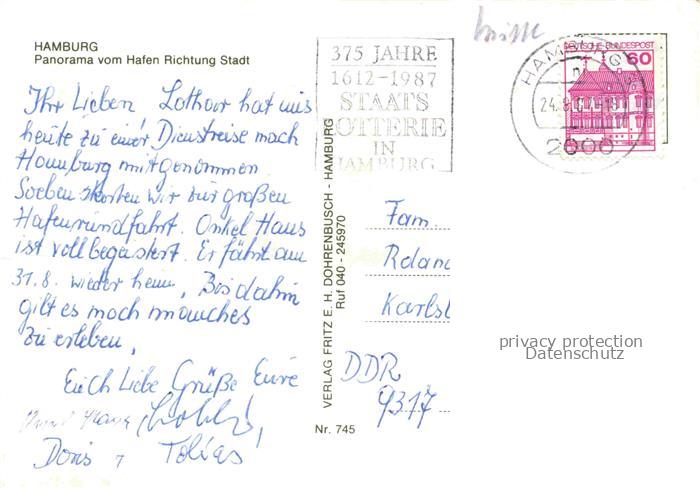 HAMBURG
Panorama vom Hafen Richtung Stadt
375 JAHRE
1612-1987
STAATS
LOTTERIE
IN
HAMBURG
HAMBURG
24.8.
2000
DEUTSCHE BUNDESPOST
60
Ihr Lieben Lothar hat uns
heute zu einer Dienstreise nach
Hamburg mitgenommen.
Soeben starten wir zur großen
Hafenrundfahrt. Onkel Hans
ist voll begeistert. Er fährt am
31.8. wieder heim, Bis dahin
gilt es noch manches
zu erleben,
Euch Liebe Grüße Eure
Onkel Hans
Doris, Tobias
VERLAG FRITZ E. H. DOHRENBUSCH - HAMBURG
Ruf 040 - 245970
Nr. 745
Fam.
Roland
Karlst
DDR
9317
privacy protection
Datenschutz